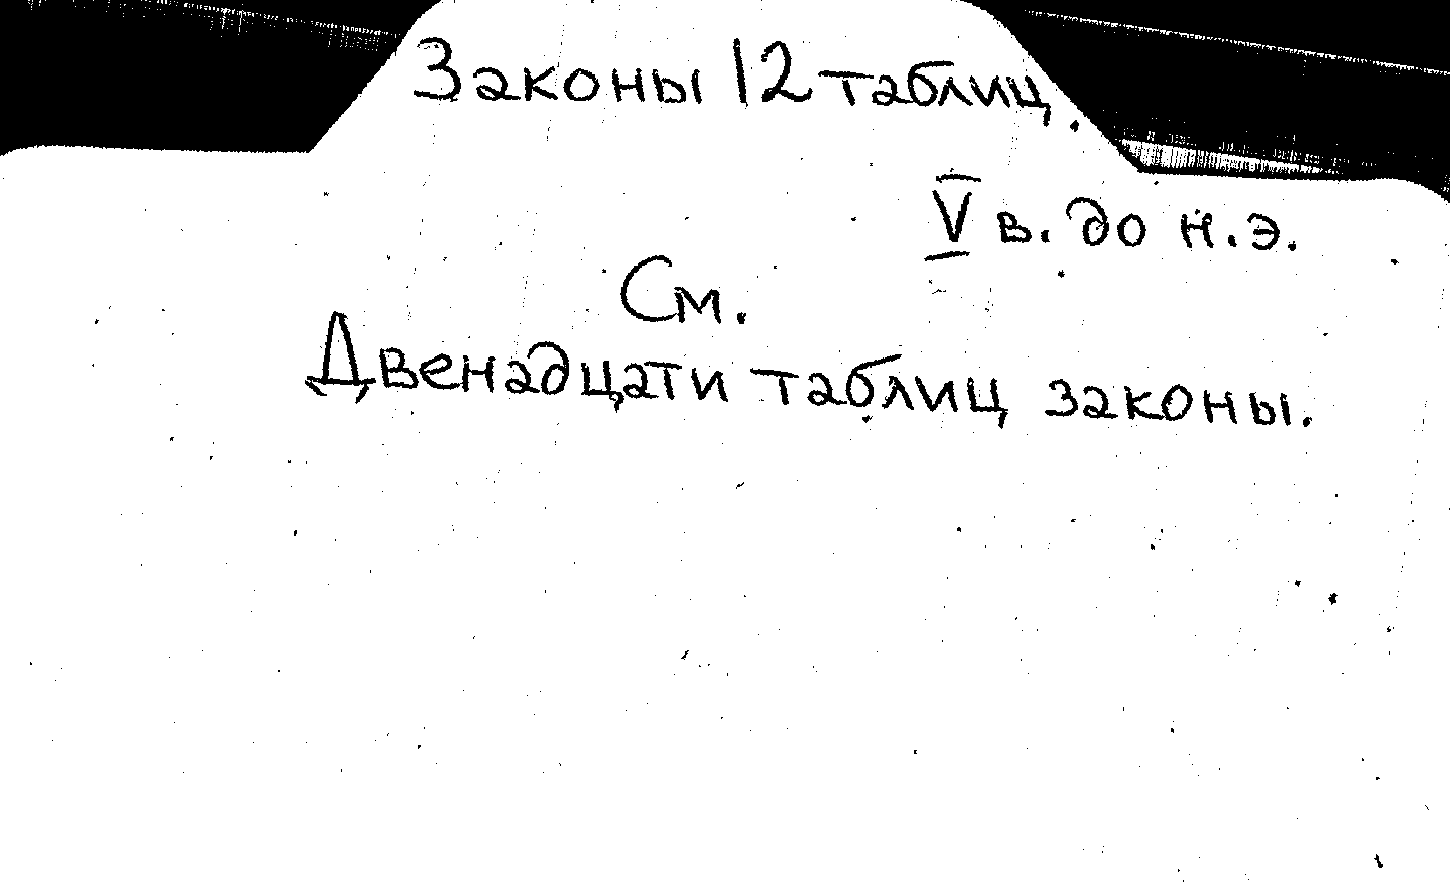 Законы 12 таблиц.
V в. до н.э.
См.
Двенадцати таблиц законы.